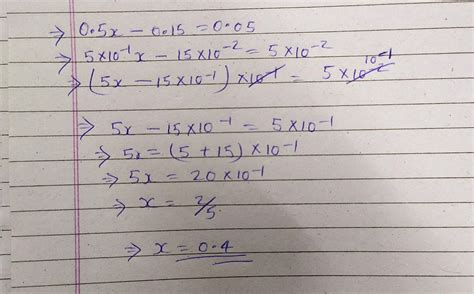 ⇒ 0.5x − 0.15 = 0.05
⇒ 5×10⁻¹x − 15×10⁻² = 5×10⁻²
⇒ (5x − 15×10⁻¹) ×10⁻¹ = 5×10⁻² 10⁻¹
⇒ 5x − 15×10⁻¹ = 5×10⁻¹
⇒ 5x = (5+15)×10⁻¹
⇒ 5x = 20×10⁻¹
⇒ x = 2/5
⇒ x = 0.4